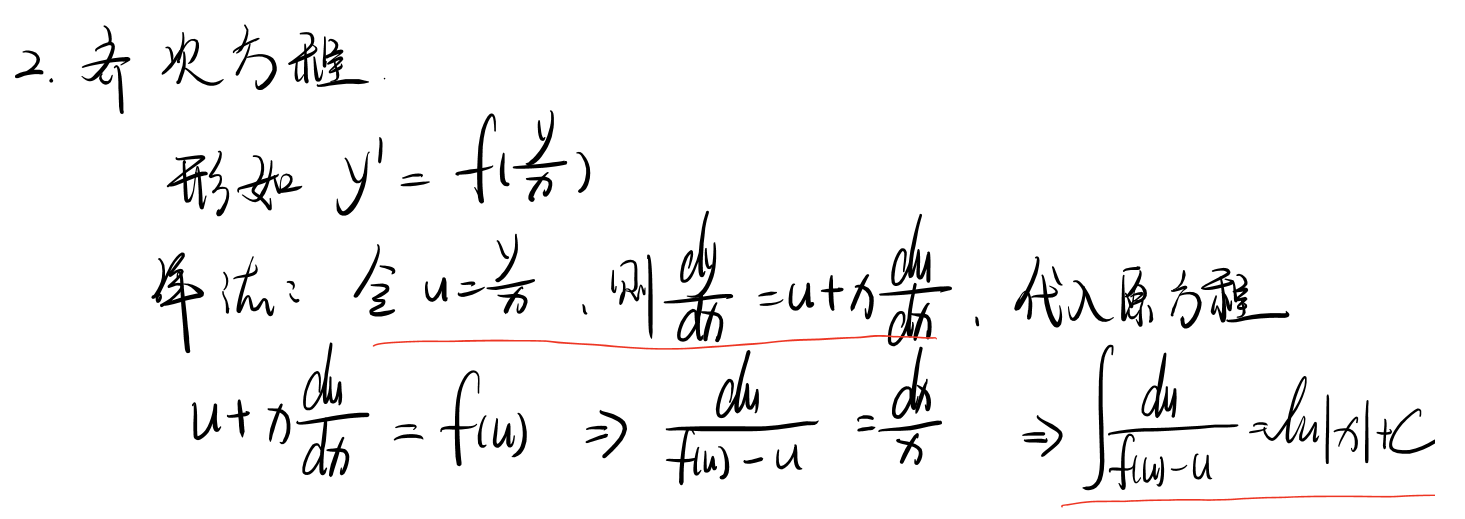 2. 齐次方程.
形如 y' = f(y/x)
解法: 令 u = y/x, 则 dy/dx = u + x du/dx, 代入原方程
u + x du/dx = f(u) ⇒ du/(f(u) - u) = dx/x ⇒ ∫ du/(f(u) - u) = ln|x| + C